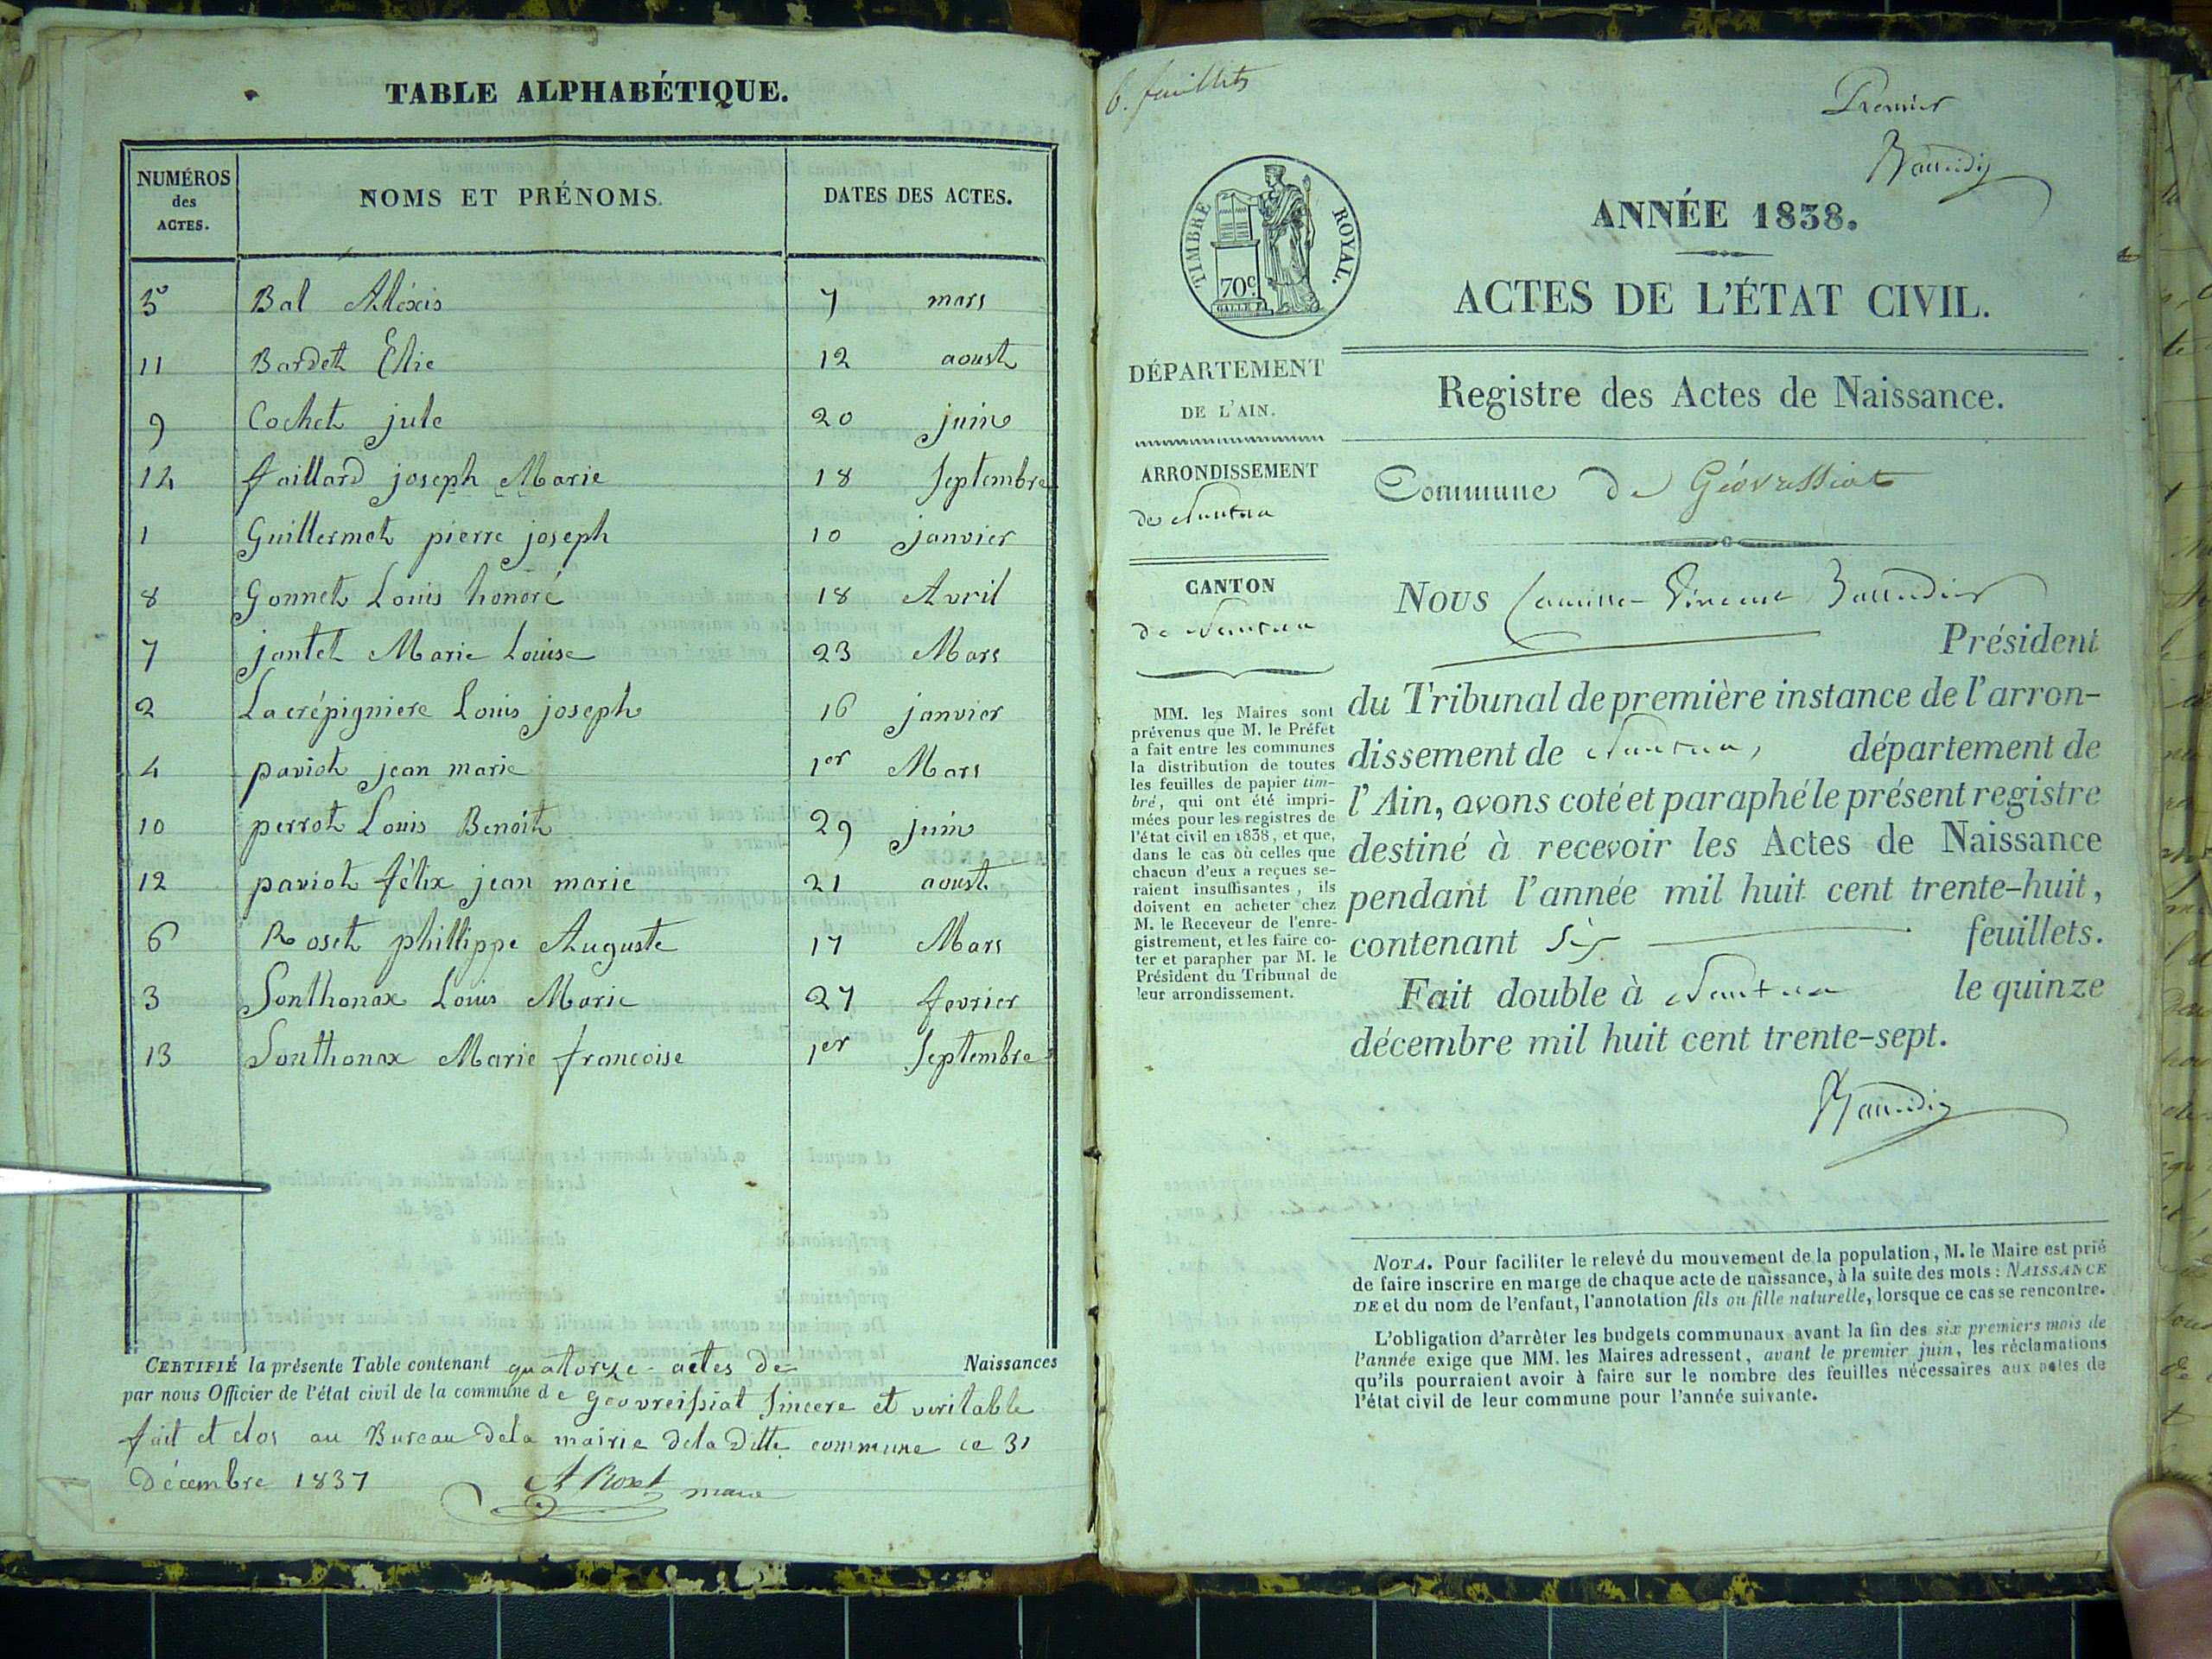 TABLE ALPHABÉTIQUE.
NUMÉROS des ACTES. NOMS ET PRÉNOMS. DATES DES ACTES.
5 Bal Aléxis 7 mars
11 Bardet Elie 12 aoust
9 Cochet jule 20 juin
14 faillard joseph Marie 18 Septembre
1 Guillermet pierre joseph 10 janvier
8 Gonnet Louis honoré 18 Avril
7 jantet Marie Louise 23 Mars
2 Lacrépigniere Louis joseph 16 janvier
4 paviot jean marie 1er Mars
10 perrot Louis Benoit 29 juin
12 paviot félix jean marie 21 aoust
6 Roset phillippe Auguste 17 Mars
3 Sonthonax Louis Marie 27 fevrier
13 Sonthonax Marie francoise 1er Septembre
CERTIFIÉ la présente Table contenant quatorze actes de Naissances
par nous Officier de l'état civil de la commune de geovreissiat sincere et veritable
fait et clos au Bureau dela mairie dela ditte commune ce 31
Décembre 1837 Roset maire
6. feuillets
Premier
Baudin
TIMBRE ROYAL.
70c.
ANNÉE 1838.
ACTES DE L'ÉTAT CIVIL.
DÉPARTEMENT
DE L'AIN.
ARRONDISSEMENT
de Nantua
CANTON
de Nantua
MM. les Maires sont
prévenus que M. le Préfet
a fait entre les communes
la distribution de toutes
les feuilles de papier tim-
bré, qui ont été impri-
mées pour les registres de
l'état civil en 1838, et que,
dans le cas où celles que
chacun d'eux a reçues se-
raient insuffisantes, ils
doivent en acheter chez
M. le Receveur de l'enre-
gistrement, et les faire co-
ter et parapher par M. le
Président du Tribunal de
leur arrondissement.
Registre des Actes de Naissance.
Commune de Géovressiat
Nous Vincent
Président
du Tribunal de première instance de l'arron-
dissement de Nantua, département de
l'Ain, avons coté et paraphé le présent registre
destiné à recevoir les Actes de Naissance
pendant l'année mil huit cent trente-huit,
contenant Six feuillets.
Fait double à Nantua le quinze
décembre mil huit cent trente-sept.
NOTA. Pour faciliter le relevé du mouvement de la population, M. le Maire est prié
de faire inscrire en marge de chaque acte de naissance, à la suite des mots : NAISSANCE
DE et du nom de l'enfant, l'annotation fils ou fille naturelle, lorsque ce cas se rencontre.
L'obligation d'arrêter les budgets communaux avant la fin des six premiers mois de
l'année exige que MM. les Maires adressent, avant le premier juin, les réclamations
qu'ils pourraient avoir à faire sur le nombre des feuilles nécessaires aux actes de
l'état civil de leur commune pour l'année suivante.